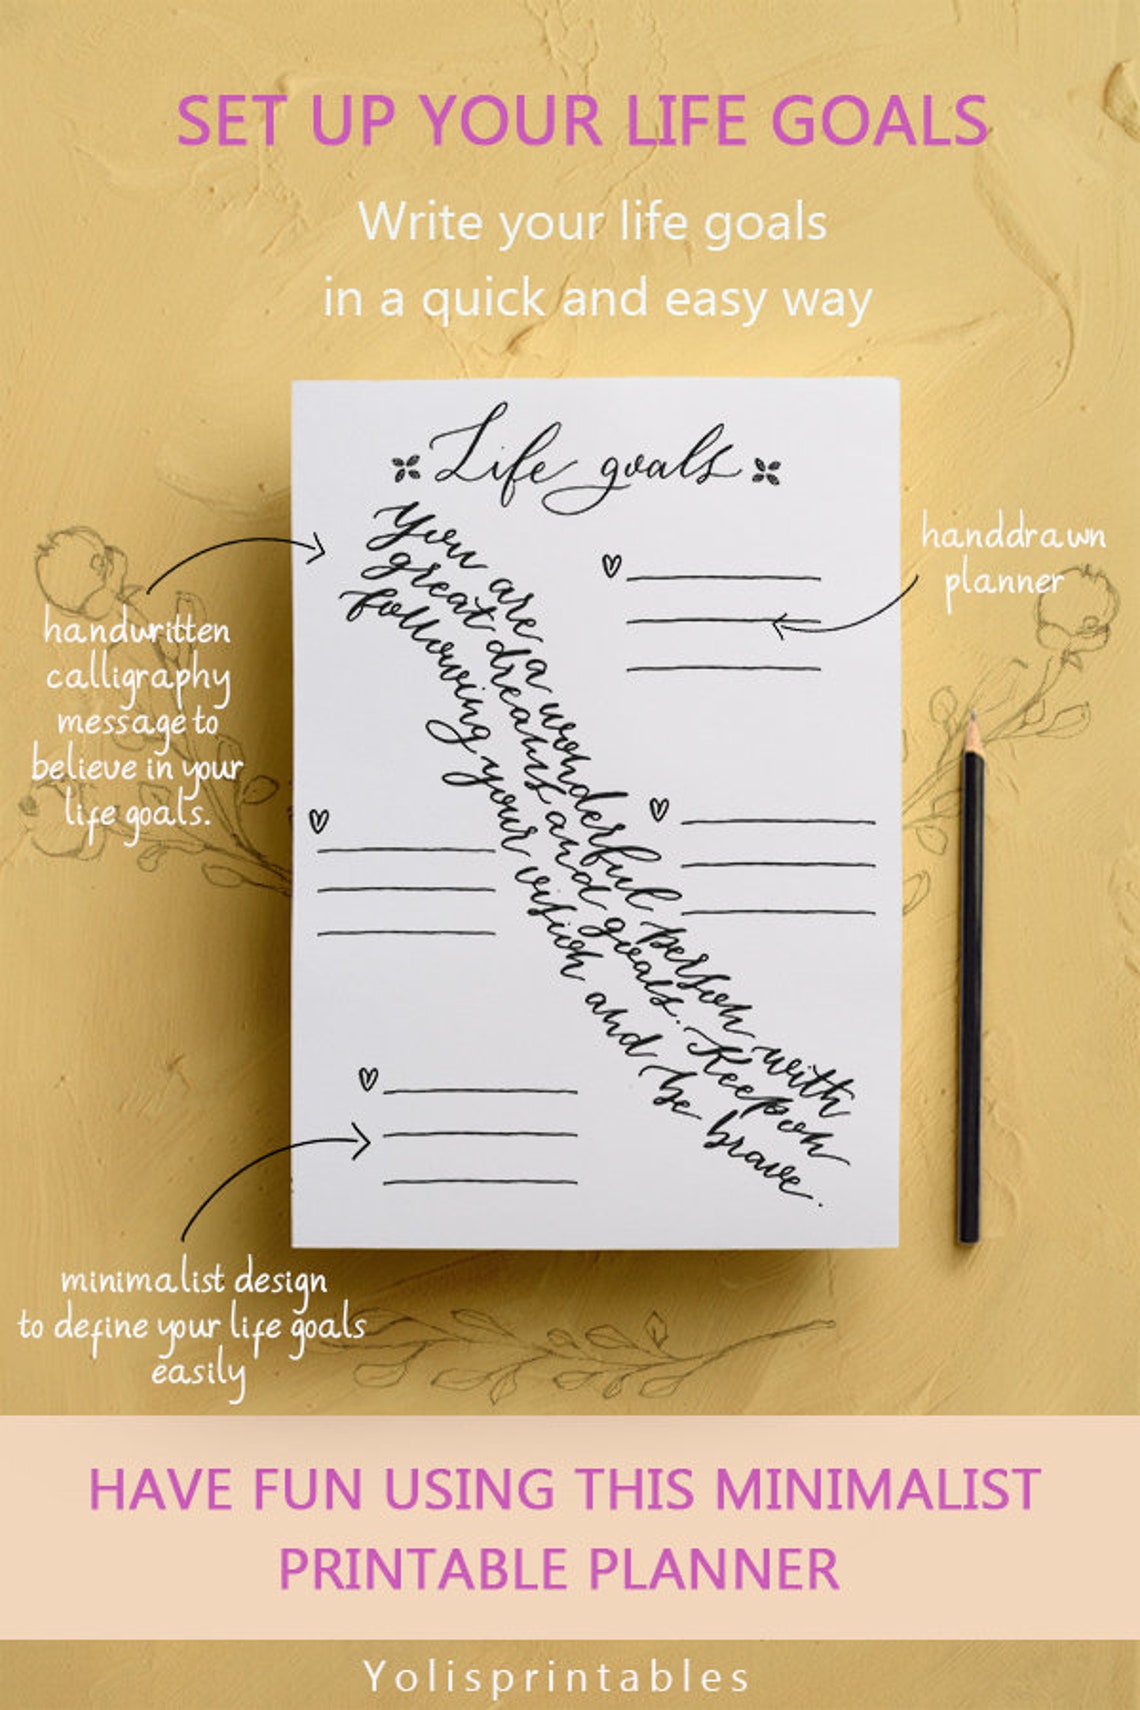 SET UP YOUR LIFE GOALS
Write your life goals
in a quick and easy way
Life goals
You are a wonderful person with
great dreams and goals. Keep on
following your vision and be brave.
handdrawn
planner
handwritten
calligraphy
message to
believe in your
life goals.
minimalist design
to define your life goals
easily
HAVE FUN USING THIS MINIMALIST
PRINTABLE PLANNER
Yolisprintables